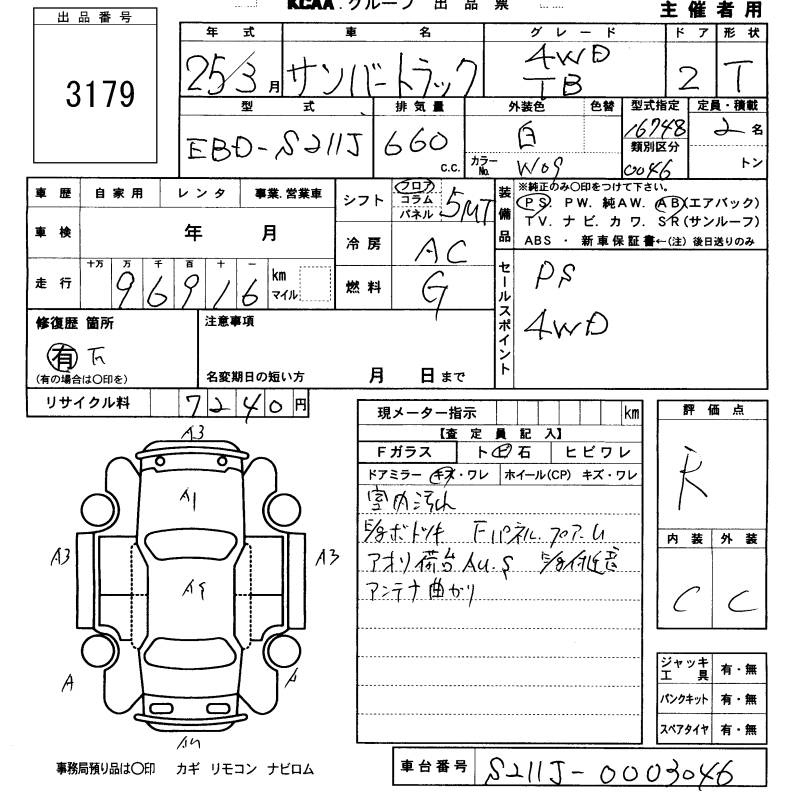 KCAA.グループ 出品票
主催者用
出品番号
3179
年式 車名 グレード ドア 形状
25/3月 サンバートラック 4WD TB 2 T
型式 排気量 外装色 色替 型式指定 定員・積載
EBD-S211J 660 c.c. 白 16748 2名
カラーNo. W09 類別区分 0046 トン
車歴 自家用 レンタ 事業.営業車
シフト フロア コラム パネル 5MT
装備品 ※純正のみ〇印をつけて下さい。
PS. PW. 純AW. AB(エアバック)
TV. ナビ. カワ. SR(サンルーフ)
ABS ・ 新車保証書←(注) 後日送りのみ
車検 年 月
冷房 AC
走行 十万 万 千 百 十 一
96916 km マイル
燃料 G
セールスポイント
PS
4WD
修復歴 箇所
有
(有の場合は〇印を)
注意事項
名変期日の短い方 月 日まで
リサイクル料 7240円
現メーター指示 km
【査定員記入】
Fガラス ト ビ 石 ヒビワレ
ドアミラー キズ・ワレ ホイール(CP) キズ・ワレ
室内汚れ
アオリ荷台AU.S
アンテナ曲がり
評価点
R
内装 外装
C C
A3
A1
A3 A3
A
A
ジャッキ工具 有・無
パンクキット 有・無
スペアタイヤ 有・無
事務局預り品は〇印 カギ リモコン ナビロム
車台番号 S211J-0003046